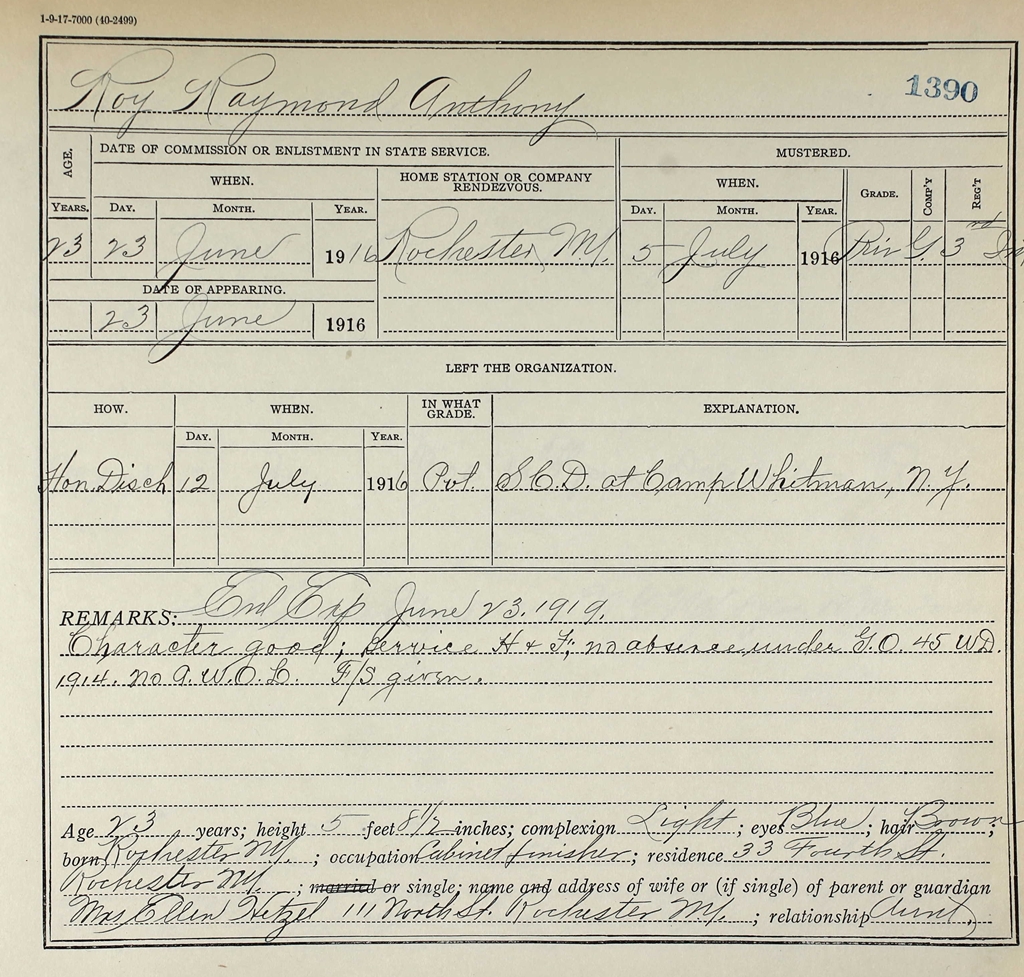 1-9-17-7000 (40-2499)
Roy Raymond Anthony 1390
AGE. DATE OF COMMISSION OR ENLISTMENT IN STATE SERVICE. MUSTERED.
WHEN. HOME STATION OR COMPANY RENDEZVOUS. WHEN. GRADE. COMP'Y REG'T
YEARS. DAY. MONTH. YEAR. DAY. MONTH. YEAR.
23 23 June 1916 Rochester NY. 5 July 1916 Priv G 3rd Inf
DATE OF APPEARING.
23 June 1916
LEFT THE ORGANIZATION.
HOW. WHEN. IN WHAT GRADE. EXPLANATION.
DAY. MONTH. YEAR.
Hon Disch 12 July 1916 Pvt. S.C.D. at Camp Whitman, N.Y.
REMARKS: Enl Exp June 23. 1919.
Character good; Service H & F; no absence under G.O. 45 WD.
1914. no A.W.O.L. F/S given.
Age 23 years; height 5 feet 8 1/2 inches; complexion Light; eyes Blue; hair Brown;
born Rochester NY.; occupation Cabinet finisher; residence 33 Fourth St.
Rochester NY.; married or single; name and address of wife or (if single) of parent or guardian
Mrs Ellen Hetzel 111 North St. Rochester NY.; relationship Aunt,